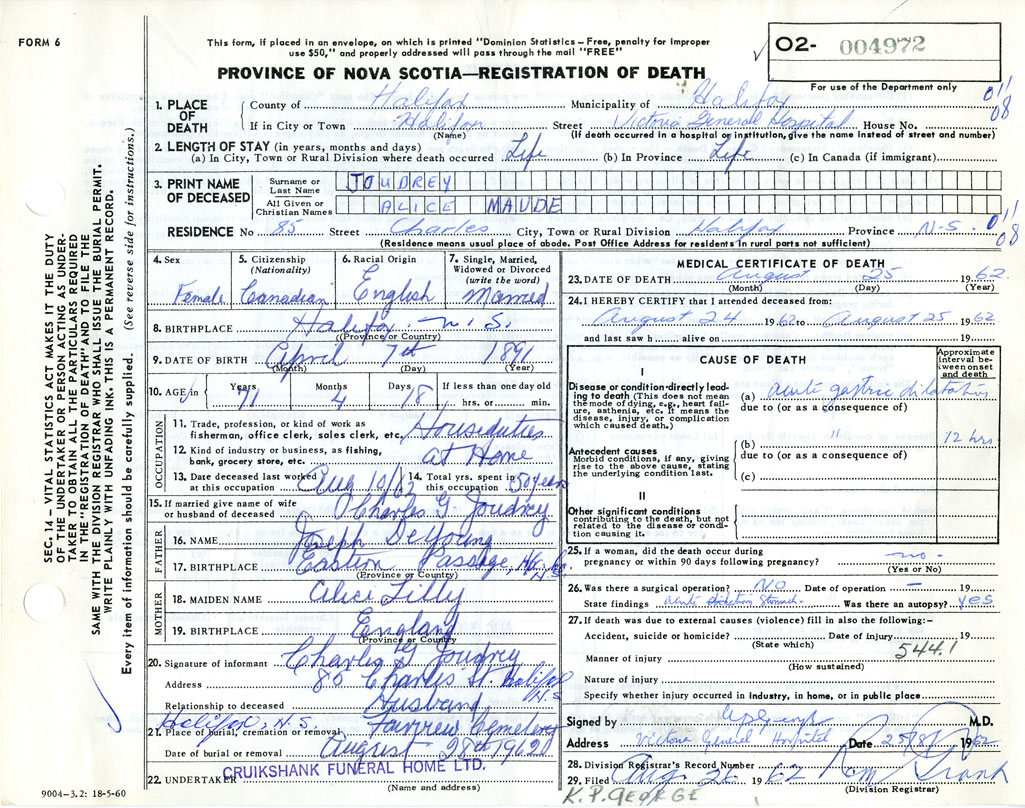 FORM 6
This form, if placed in an envelope, on which is printed "Dominion Statistics – Free, penalty for improper
use $50," and properly addressed will pass through the mail "FREE"
O2- 004972
For use of the Department only
PROVINCE OF NOVA SCOTIA—REGISTRATION OF DEATH
1. PLACE OF DEATH County of Halifax Municipality of Halifax 01/08
If in City or Town Halifax Street Victoria General Hospital House No.
(Name) (If death occurred in a hospital or institution, give the name instead of street and number)
2. LENGTH OF STAY (in years, months and days)
(a) In City, Town or Rural Division where death occurred Life (b) In Province Life (c) In Canada (if immigrant)
3. PRINT NAME OF DECEASED Surname or Last Name JOUDREY
All Given or Christian Names ALICE MAUDE
RESIDENCE No 85 Street Charles City, Town or Rural Division Halifax Province N.S. 01/08
(Residence means usual place of abode. Post Office Address for residents in rural parts not sufficient)
4. Sex Female
5. Citizenship (Nationality) Canadian
6. Racial Origin English
7. Single, Married, Widowed or Divorced (write the word) Married
8. BIRTHPLACE Halifax N.S.
(Province or Country)
9. DATE OF BIRTH April 7th 1891
(Month) (Day) (Year)
10. AGE in Years 71 Months 4 Days 18 If less than one day old
hrs. or min.
OCCUPATION
11. Trade, profession, or kind of work as
fisherman, office clerk, sales clerk, etc. Houseduties
12. Kind of industry or business, as fishing,
bank, grocery store, etc. at Home
13. Date deceased last worked at this occupation Aug 10/62 14. Total yrs. spent in this occupation 50 years
15. If married give name of wife
or husband of deceased Charles G. Joudrey
FATHER
16. NAME Joseph DeYoung
17. BIRTHPLACE Eastern Passage, Hfx. Co. N.S.
(Province or Country)
MOTHER
18. MAIDEN NAME Alice Lilly
19. BIRTHPLACE England
(Province or Country)
20. Signature of informant Charles G Joudrey
Address 85 Charles St. Halifax N.S.
Relationship to deceased Husband
Halifax, N.S.
21. Place of burial, cremation or removal Cemetery
Date of burial or removal August 28th 1962
22. UNDERTAKER CRUIKSHANK FUNERAL HOME LTD.
(Name and address)
9004-3.2: 18-5-60
MEDICAL CERTIFICATE OF DEATH
23. DATE OF DEATH August 25 1962
(Month) (Day) (Year)
24. I HEREBY CERTIFY that I attended deceased from:
August 24 1962 to August 25 1962
and last saw h alive on 19
CAUSE OF DEATH
Approximate interval between onset and death
I
Disease or condition directly leading to death (This does not mean the mode of dying, e.g., heart failure, asthenia, etc. It means the disease, injury, or complication which caused death.)
(a) acute gastric dilatation
due to (or as a consequence of)
Antecedent causes
Morbid conditions, if any, giving rise to the above cause, stating the underlying condition last.
(b) " 12 hrs.
due to (or as a consequence of)
(c)
II
Other significant conditions
contributing to the death, but not related to the disease or condition causing it.
25. If a woman, did the death occur during
pregnancy or within 90 days following pregnancy? no
(Yes or No)
26. Was there a surgical operation? No Date of operation – 19
State findings Was there an autopsy? yes
27. If death was due to external causes (violence) fill in also the following:–
Accident, suicide or homicide? Date of injury 19
(State which) 544.1
Manner of injury
(How sustained)
Nature of injury
Specify whether injury occurred in industry, in home, or in public place
Signed by M.D.
Address Victoria General Hospital Date 25/8/ 1962
28. Division Registrar's Record Number
29. Filed Aug 26 1962
(Division Registrar)
K.P. GEORGE
SEC. 14 – VITAL STATISTICS ACT MAKES IT THE DUTY
OF THE UNDERTAKER OR PERSON ACTING AS UNDER-
TAKER TO OBTAIN ALL THE PARTICULARS REQUIRED
IN THE "REGISTRATION OF DEATH" AND FILE THE
SAME WITH THE DIVISION REGISTRAR WHO SHALL ISSUE THE BURIAL PERMIT.
WRITE PLAINLY WITH UNFADING INK. THIS IS A PERMANENT RECORD.
Every item of information should be carefully supplied. (See reverse side for instructions.)